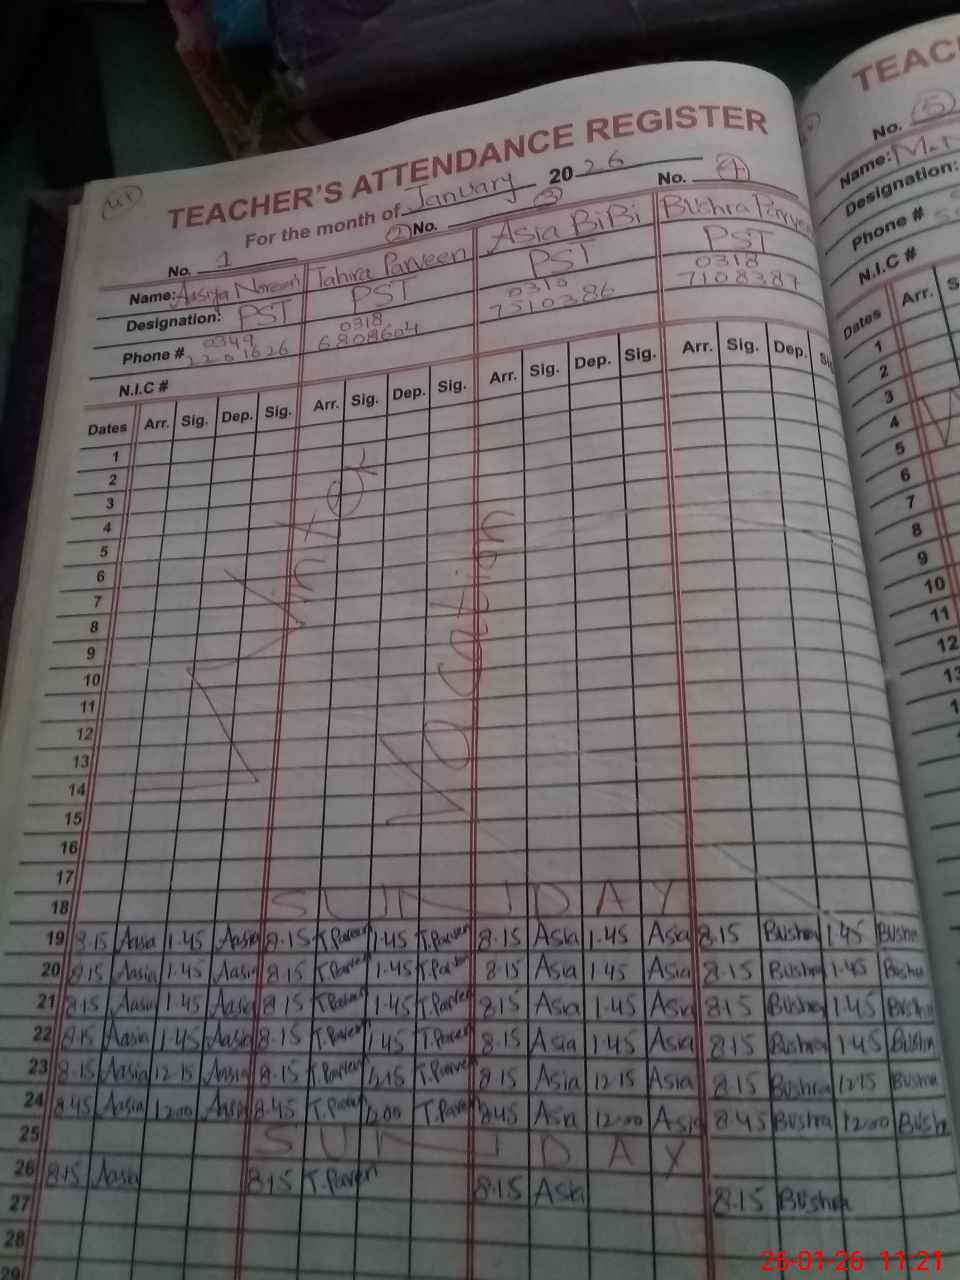 TEACHER'S ATTENDANCE REGISTER
For the month of January 2026
No. 1 2 No. 3 No. 4
Name: Aasiya Noreen Tahira Parveen Asia BiBi Bushra Parveen
Designation: PST PST PST PST
Phone # 0349 0318 0310 0318
2201626 6808604 7510386 7108387
N.I.C #
Dates Arr. Sig. Dep. Sig. Arr. Sig. Dep. Sig. Arr. Sig. Dep. Sig. Arr. Sig. Dep.
1
2
3
4
5
6
7
8
9
10
11
12
13
14
15
16
17
Winter
Vacation
18 SUNDAY
19 8.15 Aasia 1.45 Aasia 8.15 T.Parven 1.45 T.Parven 8.15 Asia 1.45 Asia 8.15 Bushra 1.45 Bushra
20 8.15 Aasia 1.45 Aasia 8.15 T.Parven 1.45 T.Parven 8.15 Asia 1.45 Asia 8.15 Bushra 1.45 Bushra
21 8.15 Aasia 1.45 Aasia 8.15 T.Parven 1.45 T.Parven 8.15 Asia 1.45 Asia 8.15 Bushra 1.45 Bushra
22 8.15 Aasia 1.45 Aasia 8.15 T.Parven 1.45 T.Parven 8.15 Asia 1.45 Asia 8.15 Bushra 1.45 Bushra
23 8.15 Aasia 12.15 Aasia 8.15 T.Parven 12.15 T.Parven 8.15 Asia 12.15 Asia 8.15 Bushra 12.15 Bushra
24 8.45 Aasia 12.00 Aasia 8.45 T.Parven 12.00 T.Parven 8.45 Asia 12.00 Asia 8.45 Bushra 12.00 Bushra
25 SUNDAY
26 8.15 Aasia 8.15 T.Parven 8.15 Asia 8.15 Bushra
27
28
29
TEAC
No. 5
Name:
Designation:
Phone #
N.I.C #
Dates Arr. S
1
2
3
4
5
6
7
8
9
10
11
12
13
26-01-26 11:21